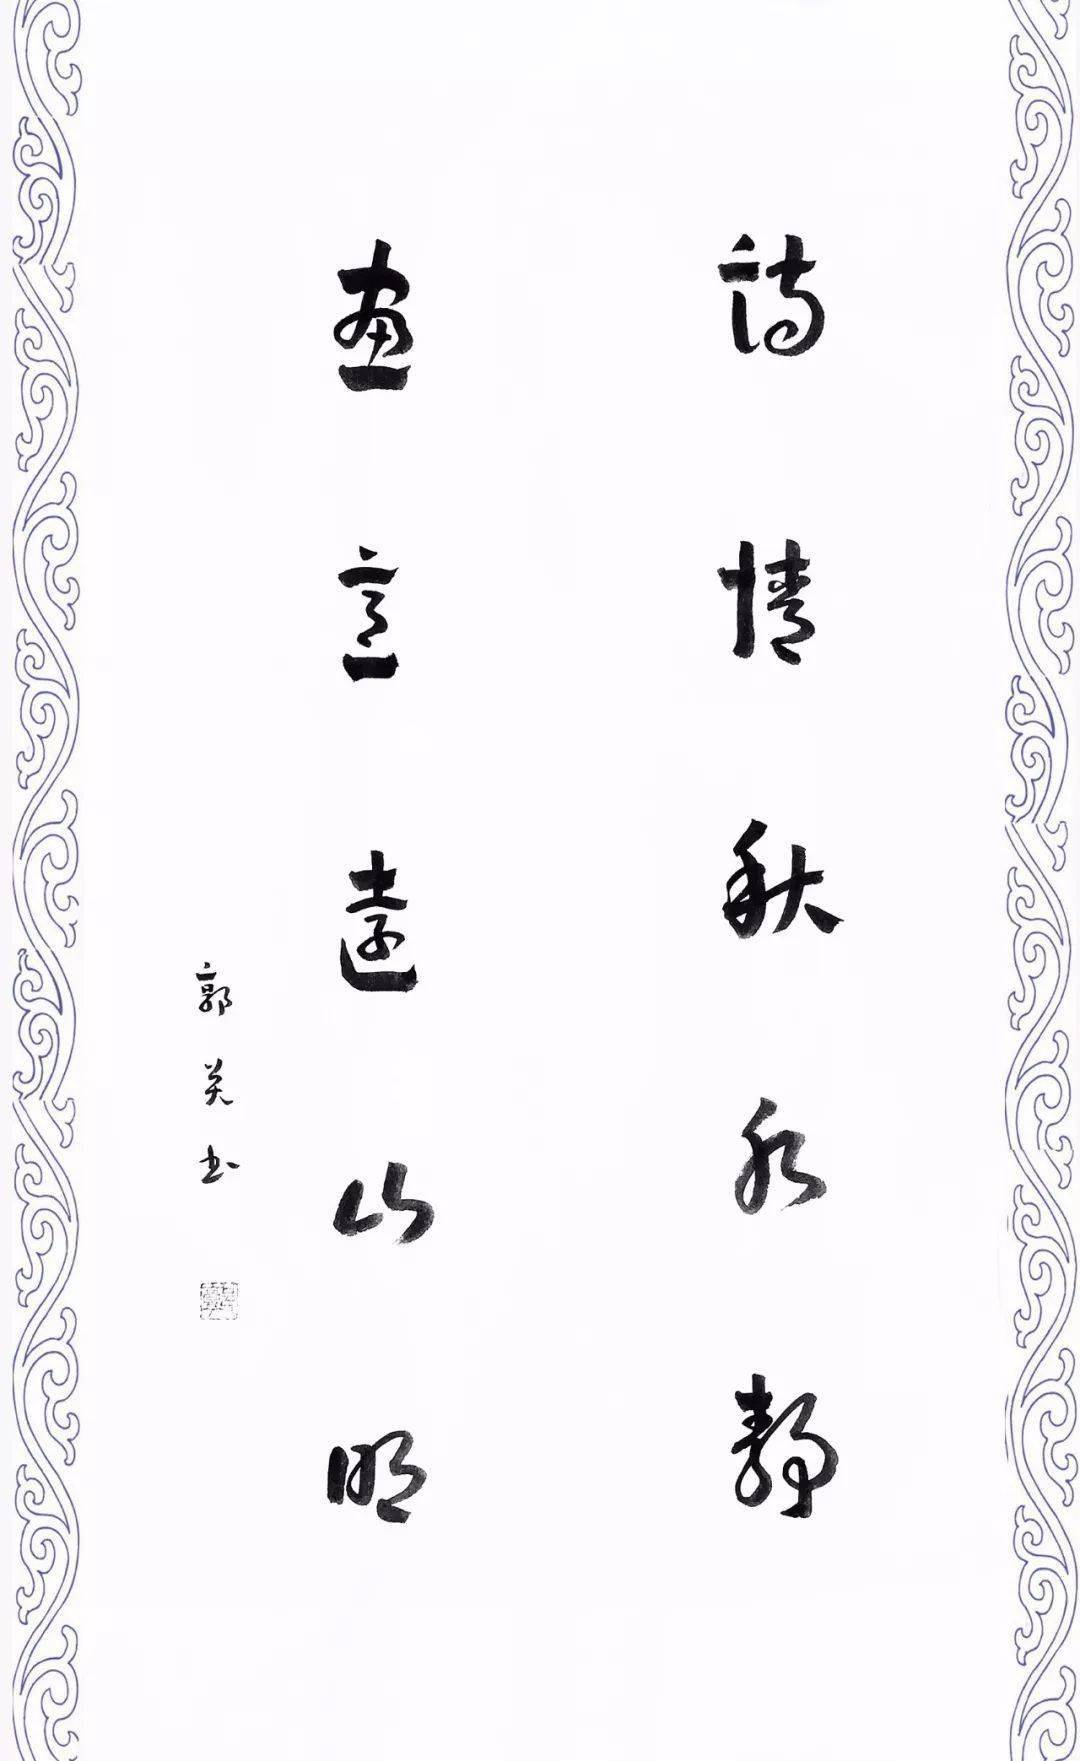 詩情秋水靜
畫意遠山明
郭英书